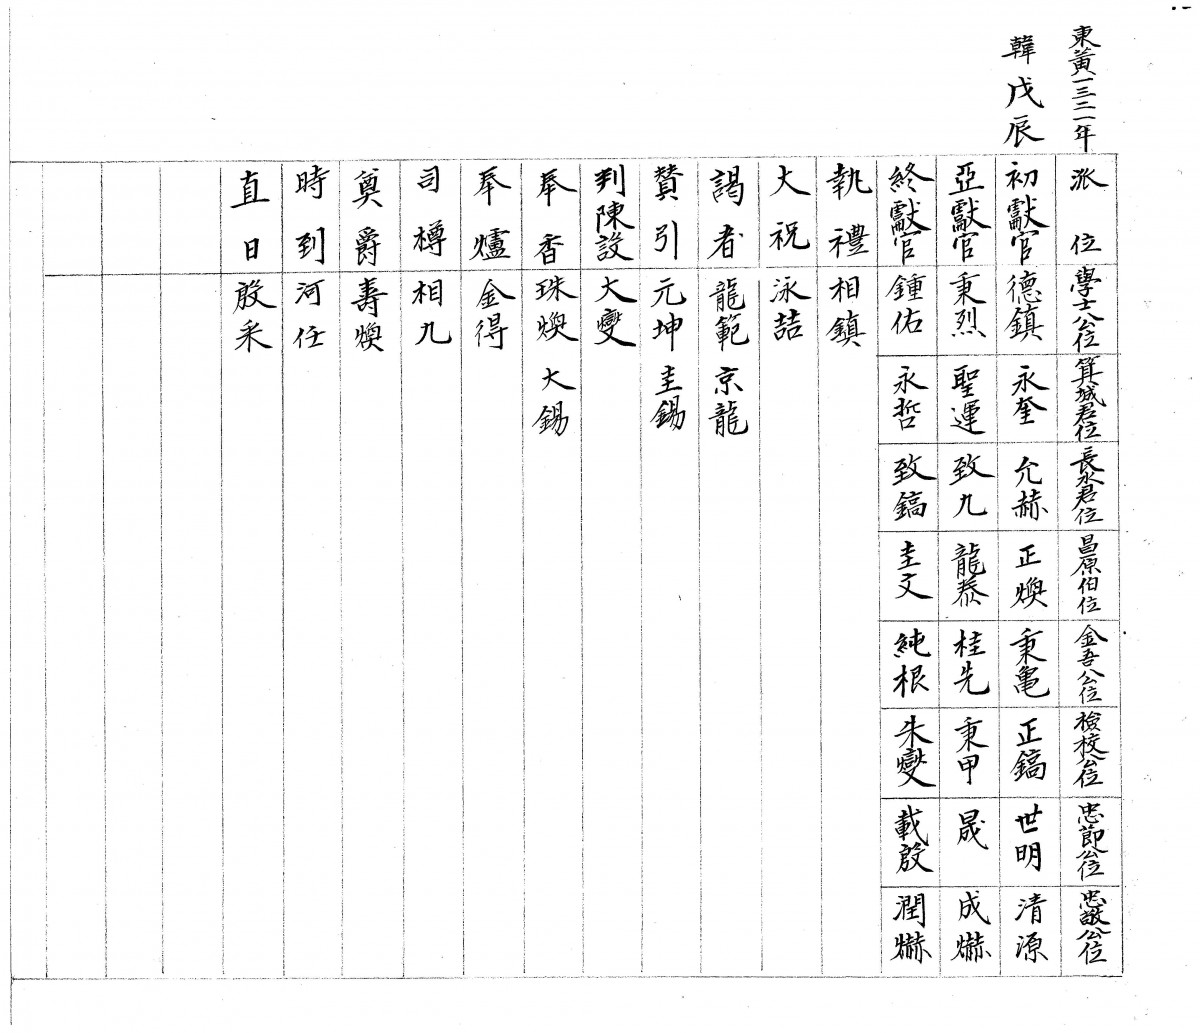 東黃一三二一年
韓戊辰
派位 學士公位 箕城君位 長水君位 昌原伯位 金吾公位 檢校公位 忠節公位 忠敬公位
初獻官 德鎮 永奎 允赫 正煥 秉亀 正鎬 世明 清源
亞獻官 秉烈 聖運 致九 龍泰 桂先 秉甲 晟 成爀
終獻官 鍾佑 永哲 致鎬 圭文 純根 朱燮 載殷 潤爀
執禮 相鎮
大祝 泳喆
謁者 龍範 京龍
贊引 元坤 圭錫
判陳設 大燮
奉香 珠煥 大錫
奉爐 金得
司樽 相九
奠爵 壽煥
時到 河任
直日 殷采